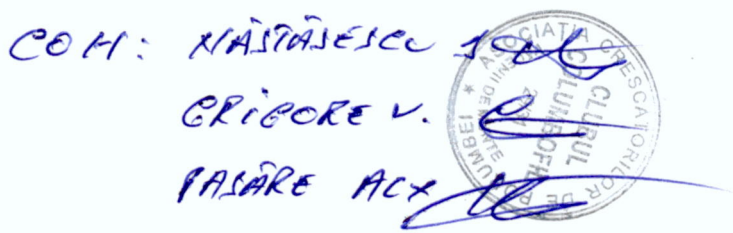 COM: NĂSTĂSESCU
GRIGORE V.
PASĂRE ALX
ASOCIAȚIA CRESCATORILOR DE
CLUBUL